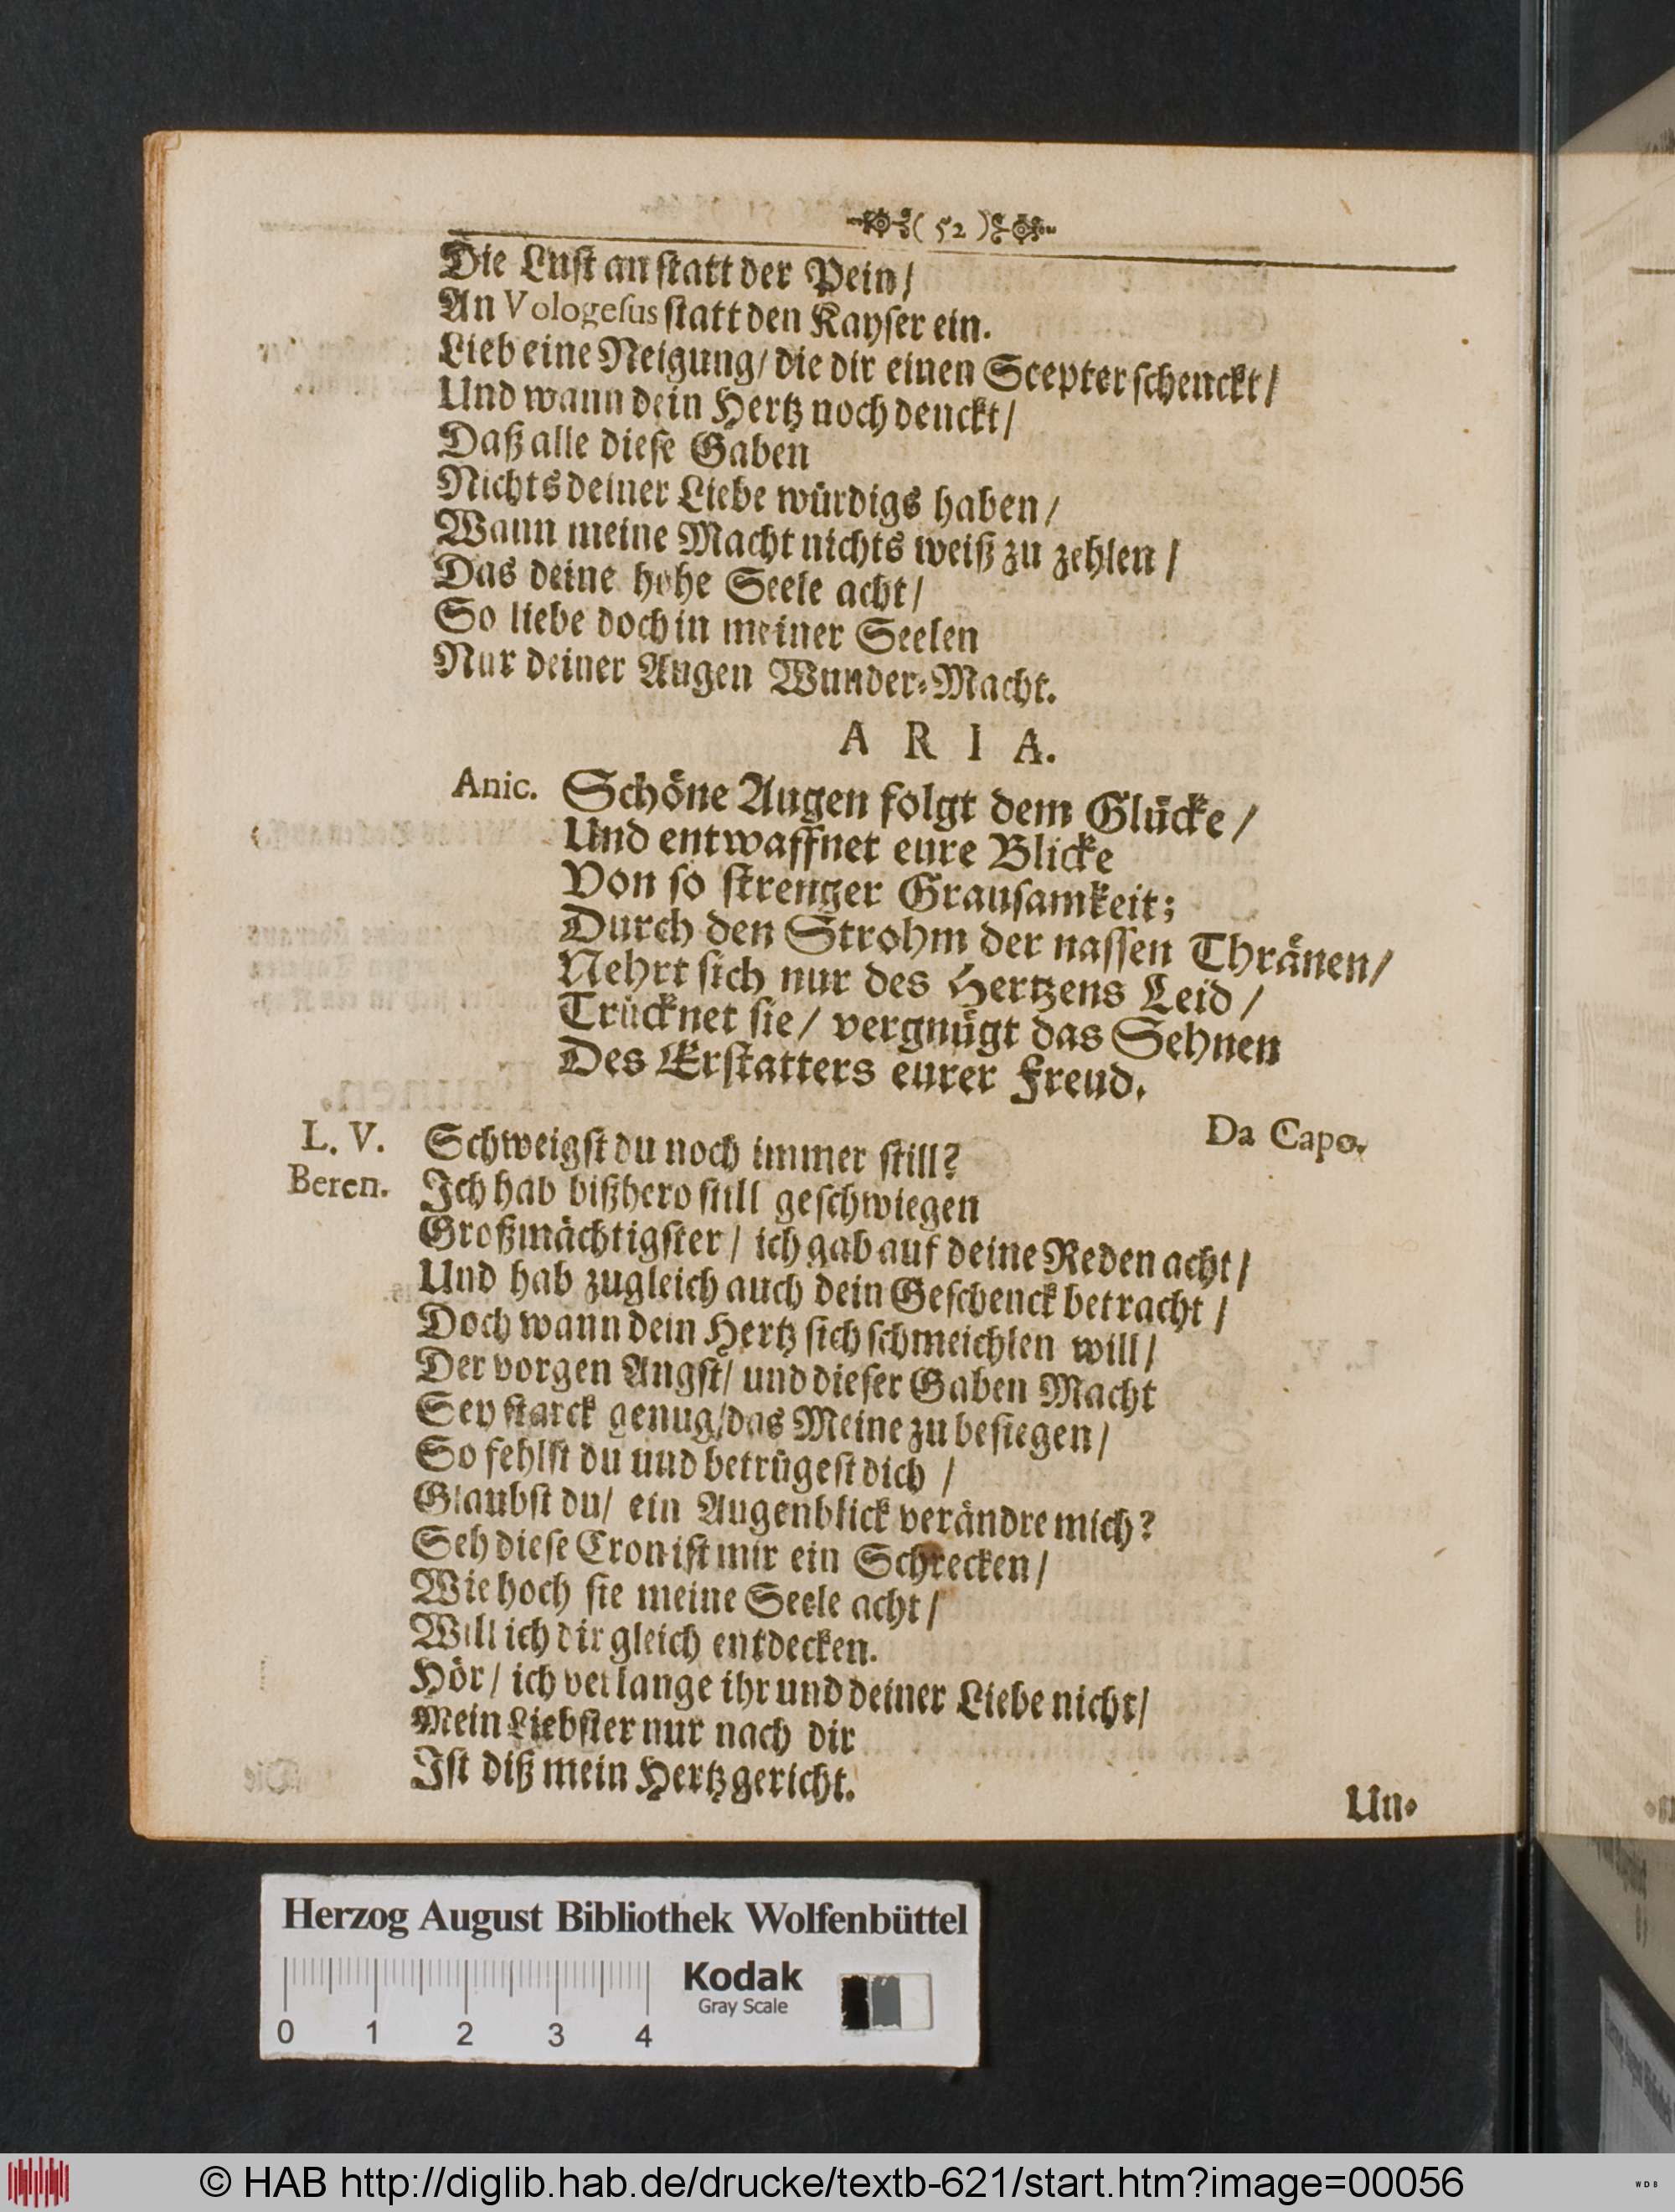 ( 52 )
Die Lust an statt der Pein /
An Vologesus statt den Kayser ein.
Lieb eine Neigung / die dir einen Scepter schenckt /
Und wann dein Hertz noch denckt /
Daß alle diese Gaben
Nichts deiner Liebe würdigs haben /
Wann meine Macht nichts weiß zu zehlen /
Das deine hohe Seele acht /
So liebe doch in meiner Seelen
Nur deiner Augen Wunder-Macht.
A R I A.
Anic. Schöne Augen folgt dem Glücke /
Und entwaffnet eure Blicke
Von so strenger Grausamkeit;
Durch den Strohm der nassen Thränen /
Nehrt sich nur des Hertzens Leid /
Trücknet sie / vergnügt das Sehnen
Des Erstatters eurer Freud.
Da Capo.
L. V. Schweigst du noch immer still?
Beren. Ich hab bißhero still geschwiegen
Großmächtigster / ich gab auf deine Reden acht /
Und hab zugleich auch dein Geschenck betracht /
Doch wann dein Hertz sich schmeichlen will /
Der vorgen Angst / und dieser Gaben Macht
Sey starck genug / das Meine zu besiegen /
So fehlst du und betrügest dich /
Glaubst du / ein Augenblick verändre mich?
Seh diese Cron ist mir ein Schrecken /
Wie hoch sie meine Seele acht /
Will ich dir gleich entdecken.
Hör / ich verlange ihr und deiner Liebe nicht /
Mein Liebster nur nach dir
Ist diß mein Hertz gericht.
Un-
Herzog August Bibliothek Wolfenbüttel
Kodak
Gray Scale
0 1 2 3 4
© HAB http://diglib.hab.de/drucke/textb-621/start.htm?image=00056
WDB